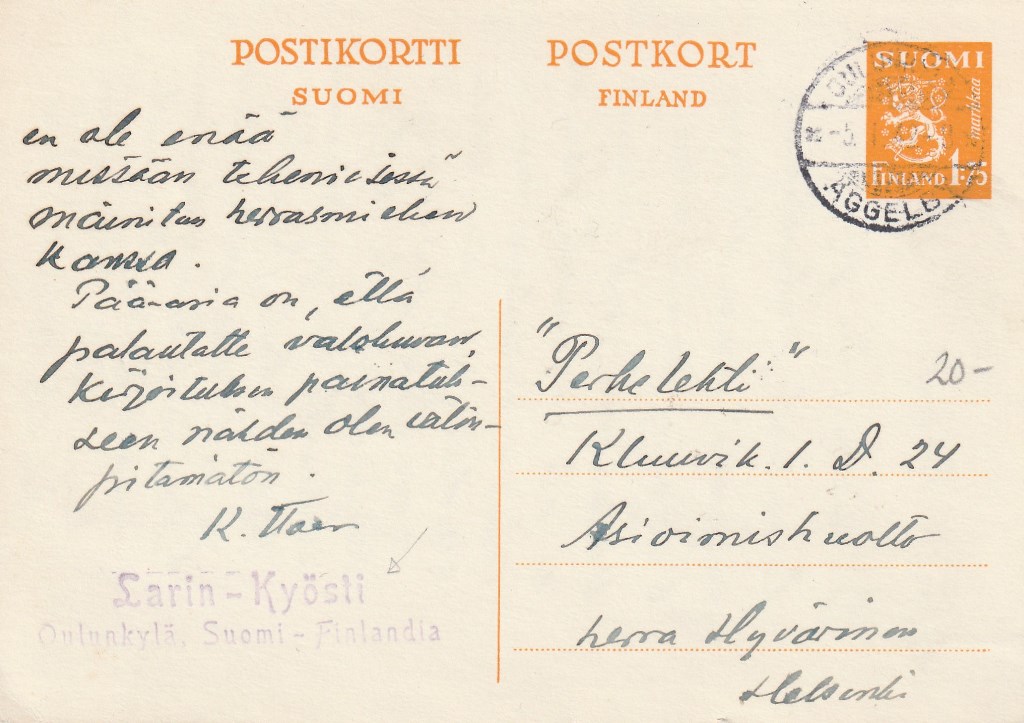 POSTIKORTTI
SUOMI
POSTKORT
FINLAND
SUOMI
markkaa
FINLAND 1:75
ÅGGELBY
en ole enää
missään tekemisissä
mainitun herrasmiehen
kanssa.
Pää-asia on, että
palautatte valokuvan,
Kirjoituksen painatuk-
seen nähden olen välin-
pitämätön.
K.
Larin-Kyösti
Oulunkylä, Suomi-Finlandia
"Perhelehti"
20-
Kluuvik. 1. D. 24
Asioimistuotto
herra Hyvärinen
Helsinki